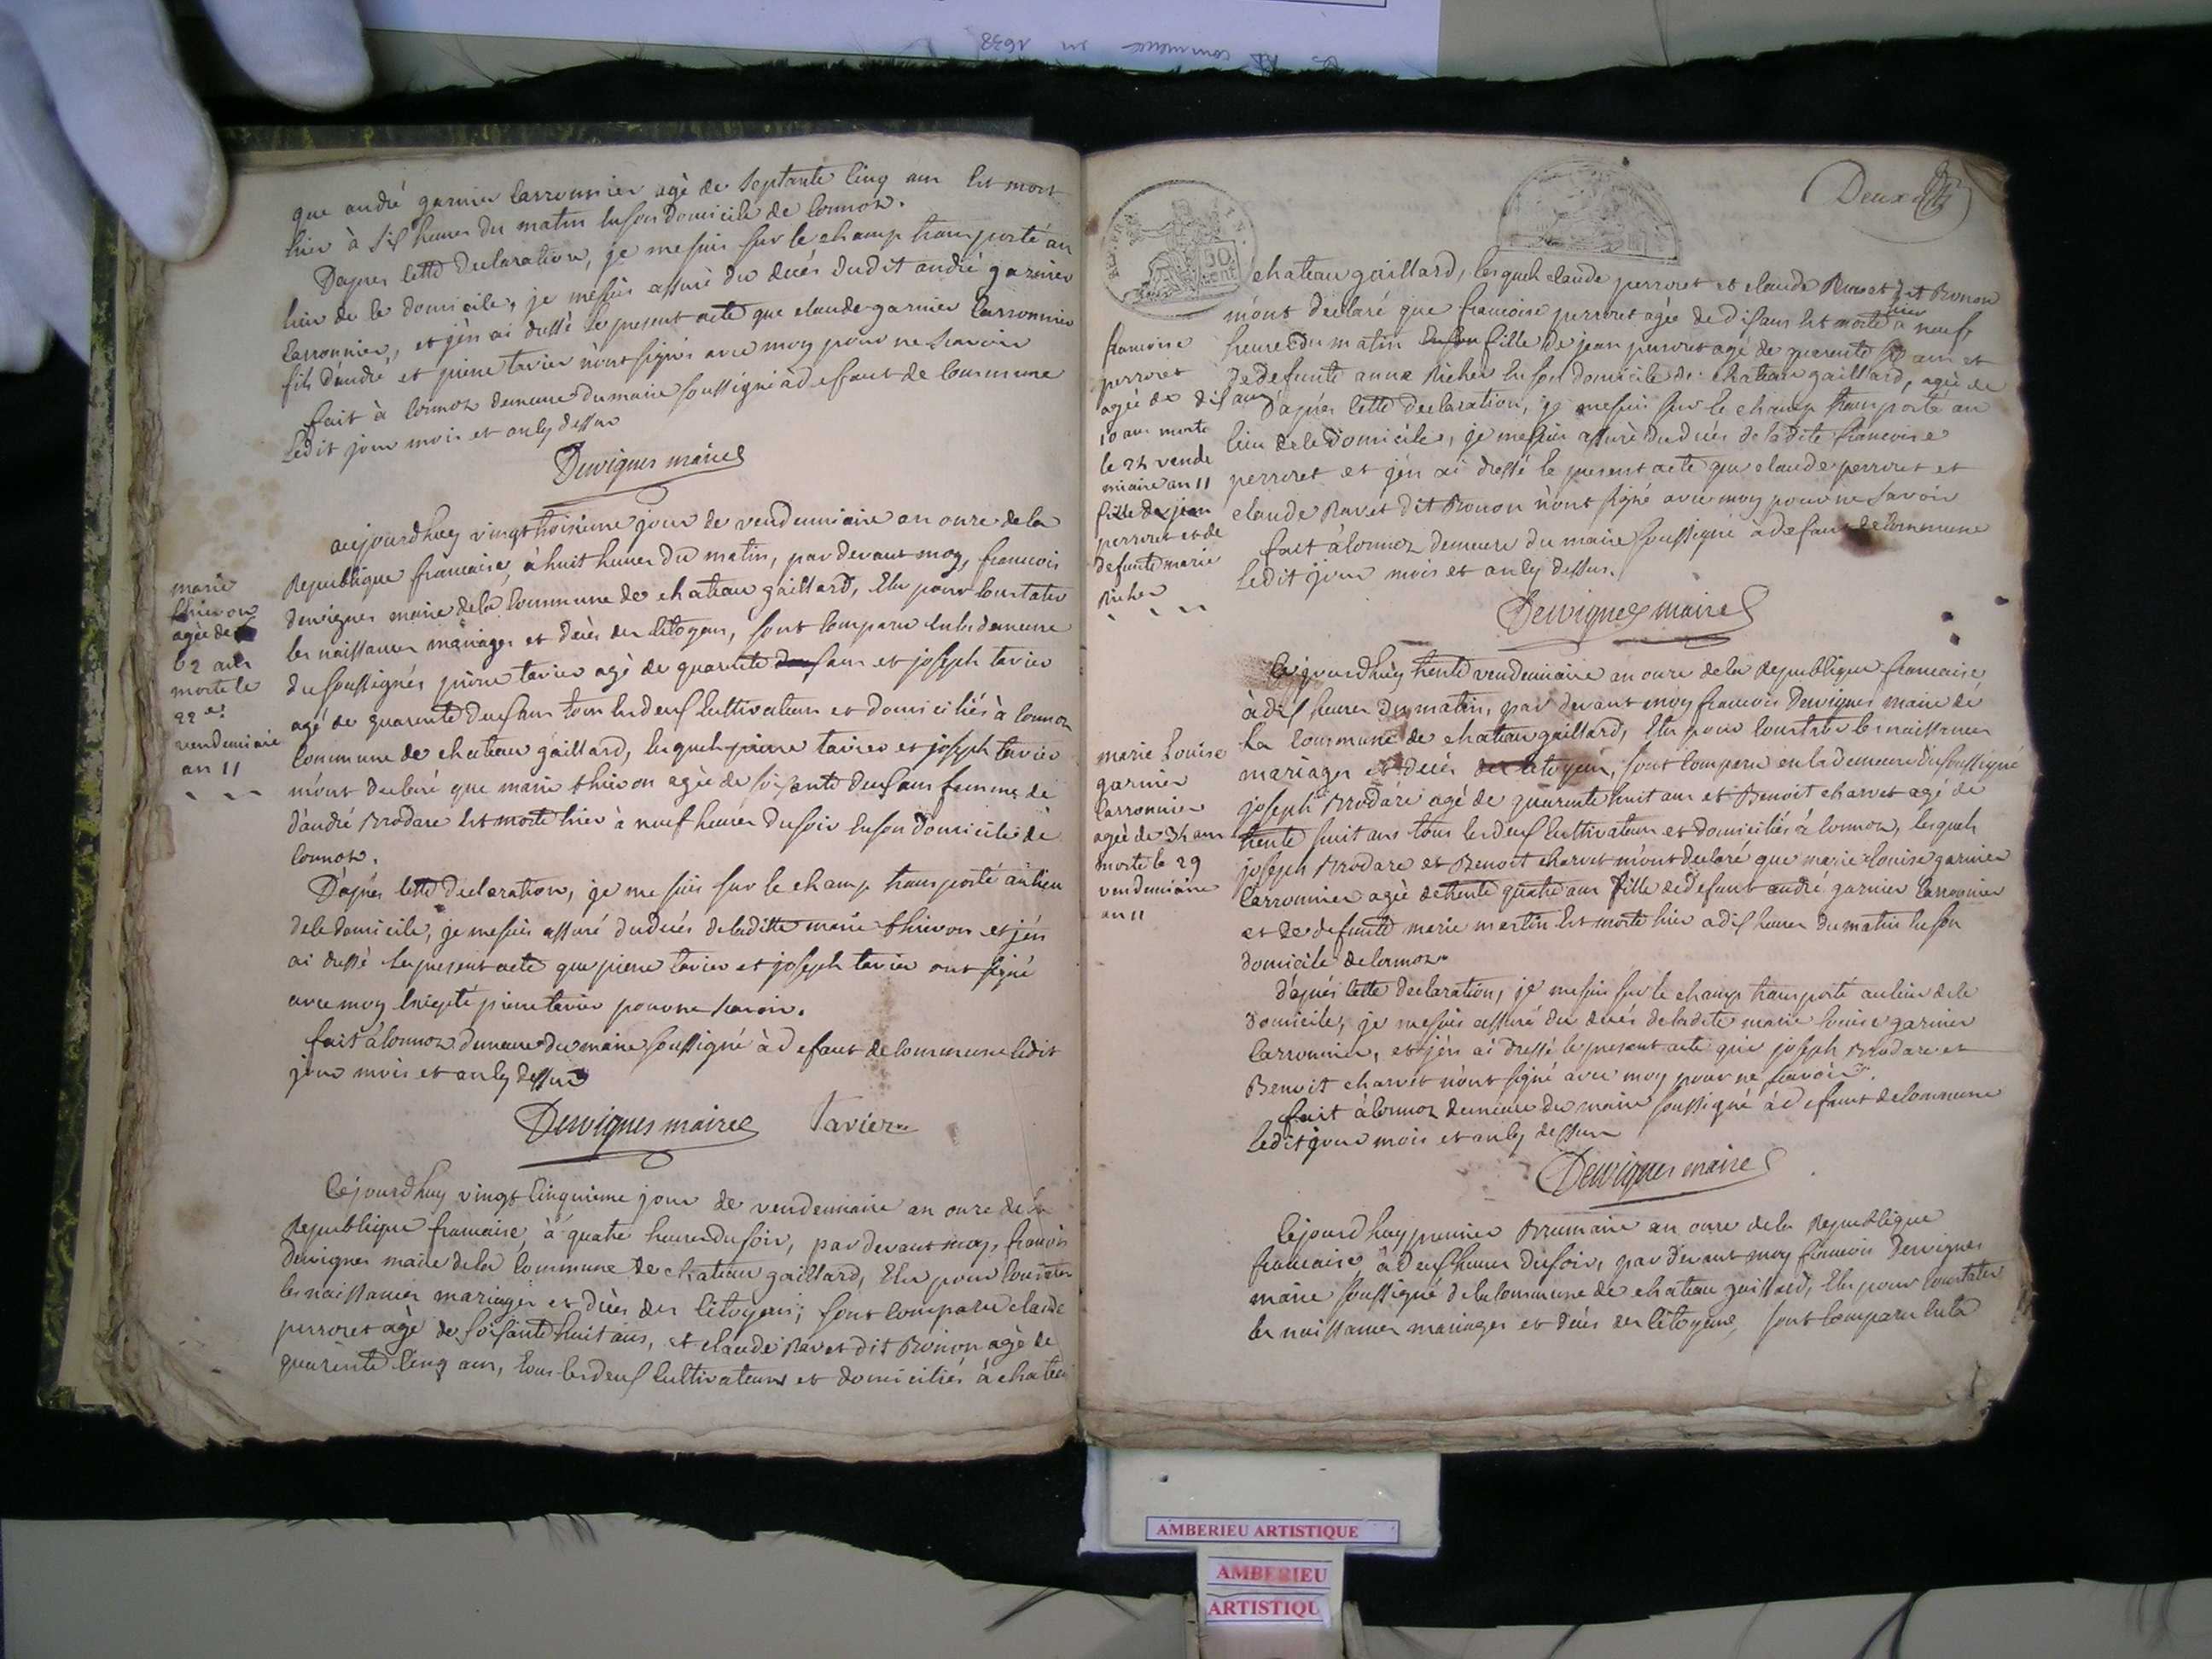 que andré garnier carronnier agè de septante cinq ans est mort
hier à six heures du matin en son domicile de cormoz.
D'apres cette declaration, je me suis sur le champ transporté au
lieu de le domicile, je me suis assuré du decés dudit andré garnier
carronnier, et j'en ai dressè le present acte que claude garnier carronnier
fils d'andré et pierre tavier n'ont signés avec moy pour ne scavoir
fait à cormoz demeure du maire soussigné à defaut de commune
ledit jour mois et an cy dessus
Dervignes maire
marie
thievon
agèe de
62 ans
morte le
22 e.
vendemiaire
an 11
aujourdhuy vingt troisieme jour de vendemiaire an onze de la
Republique francaise, à huit heures du matin, par devant moy, francois
dervignes maire de la commune de chateau gaillard, Elu pour constater
les naissances mariages et decès des citoyens, sont comparu en la demeure
du soussignés pierre tavier agè de quarente ans et joseph tavier
agé de quarente deux ans tous les deux cultivateurs et domiciliés à cormoz
commune de chateau gaillard, lesquels pierre tavier et joseph tavier
m'ont declaré que marie thievon agèe de soixante deux ans femme de
d'andré Brodare est morte hier à neuf heures du soir en son domicile de
cormoz.
D'apres cette declaration, je me suis sur le champ transporté au lieu
de le domicile, je me suis assuré du decés de laditte marie thievon et j'en
ai dressè le present acte que pierre tavier et joseph tavier ont signé
avec moy excepté pierre tavier pour ne scavoir.
fait à cormoz demeure du maire soussigné à defaut de commune ledit
jour mois et an cy dessus
Dervignes maire Tavier
Cejourdhuy vingt cinquieme jour de vendemiaire an onze de la
Republique francaise, à quatre heures du soir, par devant moy, francois
Dervignes maire de la commune de chateau gaillard, Elu pour constater
les naissances mariages et decès des citoyens, sont comparu claude
perroret agè de soixante huit ans, et claude Ravet dit Bonon agè de
quarente cinq ans, tous les deux cultivateurs et domiciliés à chateau
Deux
50
cent
chateau gaillard, lesquels claude perroret et claude Ravet dit Bonon
hier
m'ont declaré que francoise perroret agèe de dix ans est morte à neuf
heures du matin fille de jean perroret agé de quarente ans et
de defunte anne Richer en son domicile de chateau gaillard, agèe de
D'apres cette declaration, je me suis sur le champ transporté au
lieu de le domicile, je me suis assuré du decés de la dite francoise
perroret et j'en ai dressé le present acte que claude perroret et
claude Ravet dit Bonon n'ont signé avec moy pour ne savoir
fait à cormoz demeure du maire soussigné a defaut de commune
ledit jour mois et an cy dessus.
Dervignes maire
francoise
perroret
agée de dix ans
10 ans morte
le 24 vende
miaire an 11
fille de jean
perroret et de
defunte marie
Richer
Cejourdhuy trente vendemiaire an onze de la Republique francaise
à dix heures du matin, par devant moy francois Dervignes maire de
la commune de chateau gaillard, Elu pour constater les naissances
mariages et decés des citoyens, sont comparu en la demeure du soussigné
joseph Brodare agé de quarente huit ans et Benoit charvet agé de
trente huit ans tous les deux cultivateurs et domiciliés à cormoz, lesquels
joseph Brodare et Benoit charvet m'ont declaré que marie louise garnier
carronnier agèe de trente quatre ans fille de defunt andré garnier carronnier
et de defunte marie martin est morte hier a dix heures du matin en son
domicile de cormoz.
d'apres cette declaration, je me suis sur le champ transporté au lieu de le
domicile, je me suis assuré du decés de la dite marie louise garnier
carronnier, et j'en ai dressé le present acte que joseph Brodare et
Benoit charvet n'ont signé avec moy pour ne savoir.
fait à cormoz demeure du maire soussigné à defaut de commune
ledit jour mois et an cy dessus
Dervignes maire
marie louise
garnier
carronnier
agèe de 34 ans
morte le 29
vendemiaire
an 11
Cejourdhuy premier Brumaire an onze de la Republique
francaise, à deux heures du soir, par devant moy francois Dervignes
maire soussigné de la commune de chateau gaillard, Elu pour constater
les naissances mariages et decés des citoyens, sont comparu en la
AMBERIEU ARTISTIQUE
AMBERIEU
ARTISTIQU